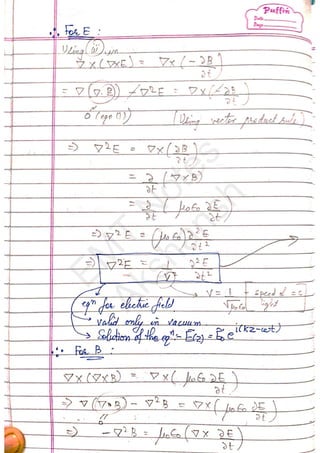 Puffin
Date
Page
∴ For E :
Using (iii) eqn
∇×(∇×E) = ∇×(-∂B/∂t)
= ∇(∇.B) -∇²E = ∇×(-∂B/∂t)
0 (eqn (i)) [Using vector product rule]
⇒ ∇²E = ∇×(∂B/∂t)
= ∂/∂t (∇×B)
= ∂/∂t (μ₀ε₀ ∂E/∂t)
⇒ ∇²E = (μ₀ε₀) ∂²E/∂t²
⇒ ∇²E = 1/V² ∂²E/∂t²
V = 1/√μ₀ε₀ = speed of light = c
eqⁿ for electric field
→ valid only in vacuum
→ Solution of the eqⁿ:- E(z) = E₀ e^i(kz-ωt)
∴ For B :
∇×(∇×B) = ∇×(μ₀ε₀ ∂E/∂t)
⇒ ∇(∇.B) - ∇²B = ∇×(μ₀ε₀ ∂E/∂t)
0
⇒ -∇²B = μ₀ε₀ (∇× ∂E/∂t)
EMT Notes